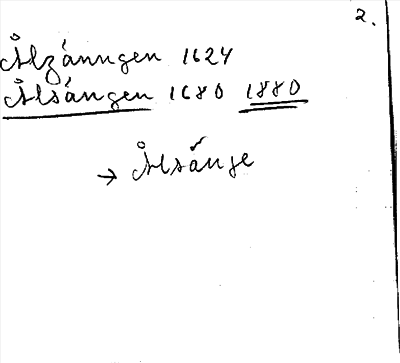 2.
Ålzánngen 1624
Ålsángen 1680 1880
→ Ålsånge